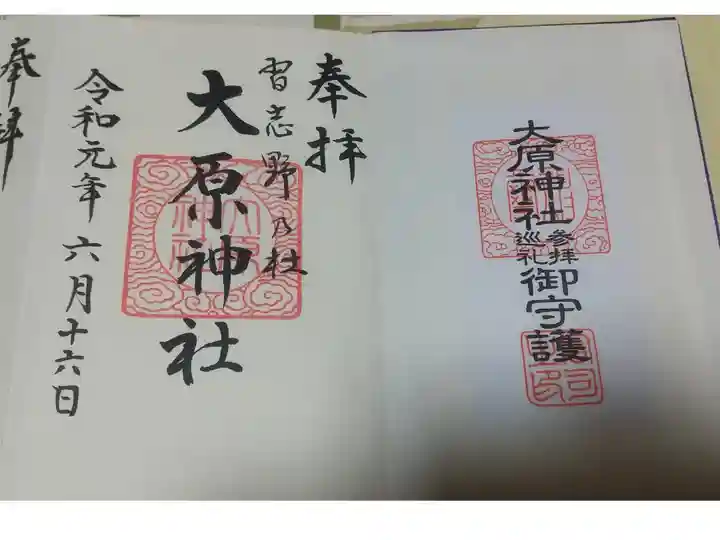 大原神社
参拝
巡礼
御守護
奉拝
習志野乃杜
大原神社
令和元年六月十六日
奉拝